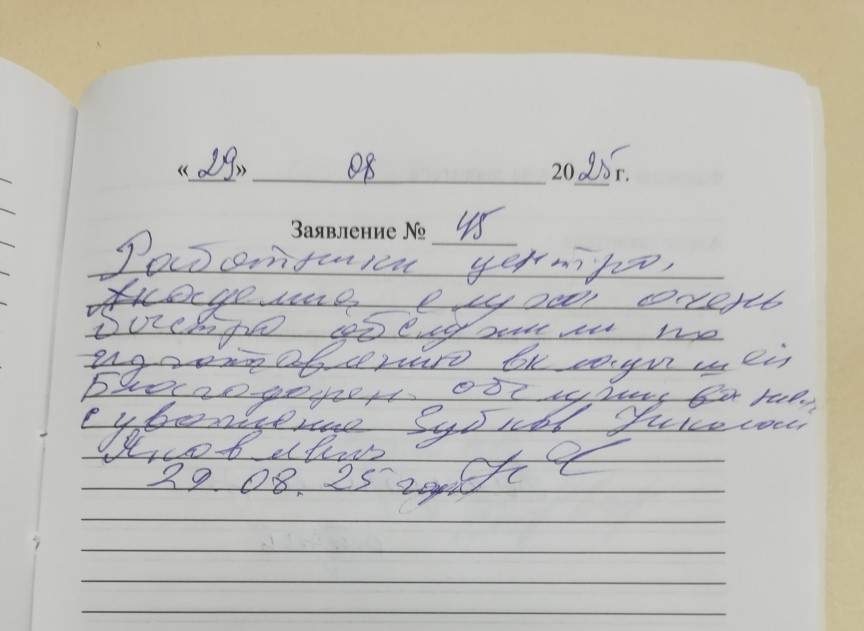 «29» 08 2025 г.
Заявление № 45
Работники центра,
Академия слуха очень
быстро обслужили по
изготавлению вкладышей
Благодарен обслуживанием
с уважение Зубков Николай
Яковлевич
29.08.25 года